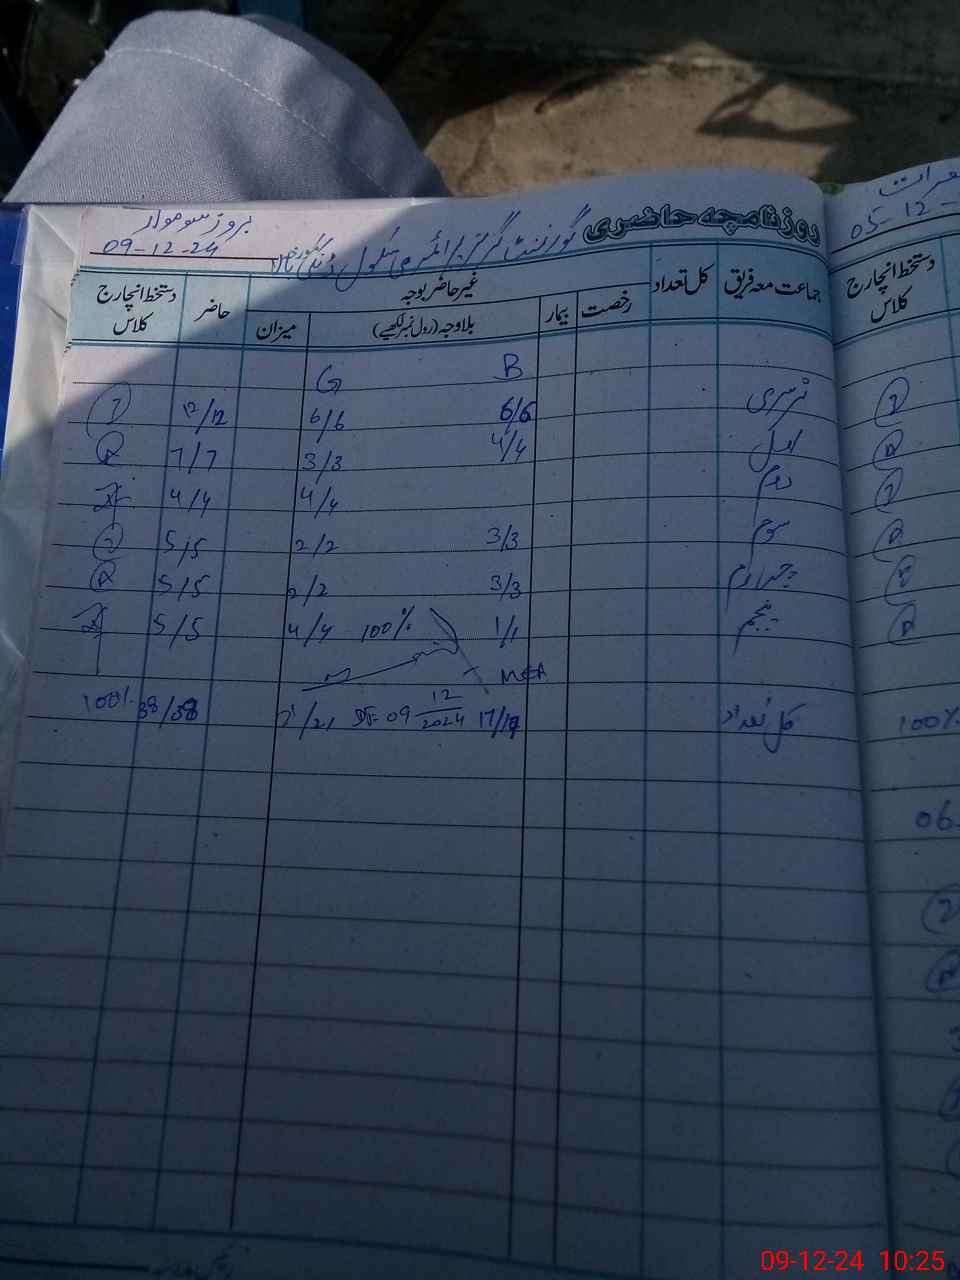 روزنامچہ حاضری گورنمنٹ گرلز پرائمری سکول بروز سوموار
09-12-24
جماعت معہ فریق کل تعداد غیر حاضر بوجہ حاضر دستخط انچارج کلاس
رخصت بیمار بلاوجہ (رول نمبر لکھیے) میزان
B G
نرسری 6/6 6/6 12/12
اول 4/4 3/3 7/7
دوم 4/4 4/4
سوم 3/3 2/2 5/5
چہارم 3/3 2/2 5/5
پنجم 1/1 100% 4/4 5/5
MEA
کل تعداد 17/17 DT= 09 12/2024 21/21 38/38 100%
05-12-
دستخط انچارج کلاس
100%
06-
09-12-24 10:25